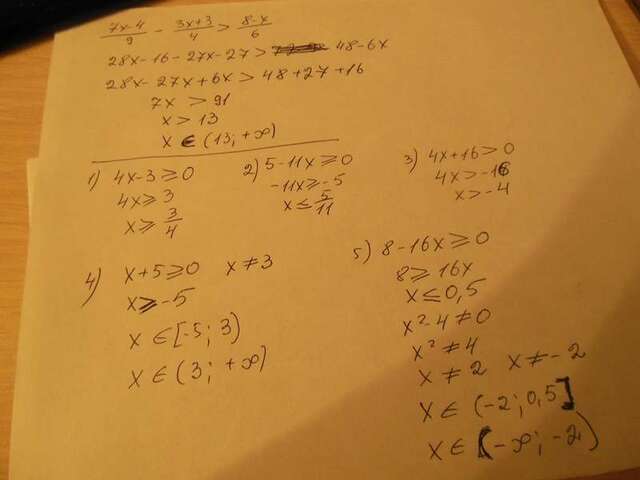 (7x-4)/9 - (3x+3)/4 > (8-x)/6
28x-16-27x-27 > 48-6x
28x-27x+6x > 48+27+16
7x > 91
x > 13
x ∈ (13; +∞)
1) 4x-3 ≥ 0
4x ≥ 3
x ≥ 3/4
2) 5-11x ≥ 0
-11x ≥ -5
x ≤ 5/11
3) 4x+16 > 0
4x > -16
x > -4
4) x+5 ≥ 0 x ≠ 3
x ≥ -5
x ∈ [-5; 3)
x ∈ (3; +∞)
5) 8-16x ≥ 0
8 ≥ 16x
x ≤ 0,5
x²-4 ≠ 0
x² ≠ 4
x ≠ 2 x ≠ -2
x ∈ (-2; 0,5]
x ∈ (-∞; -2)